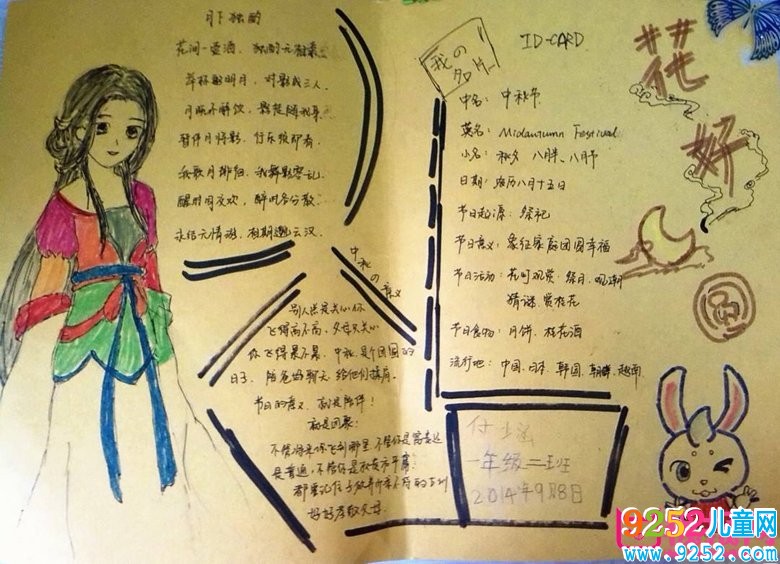 月下独酌
花间一壶酒，独酌无相亲。
举杯邀明月，对影成三人。
月既不解饮，影徒随我身。
暂伴月将影，行乐须即春。
我歌月徘徊，我舞影零乱。
醒时同交欢，醉时各分散。
永结无情游，相期邈云汉。
中秋の意义
别人总是关心你
飞得高不高，父母只关心
你飞得累不累，中秋是个团圆的
日子，陪爸妈聊天
节日的意义，就是陪伴！
就是团聚！
不管将来你飞到哪里，不管你是富贵还
是普通，不管你是
好好孝敬父母
我の名片
ID-CARD
中名：中秋节
英名：Midautumn Festival
小名：秋夕、八月半、八月节
日期：农历八月十五日
节日起源：祭祀
节日意义：象征家庭团圆幸福
节日活动：花灯观赏、祭月、观潮
猜谜、赏桂花
节日食物：月饼、桂花酒
流行地：中国、日本、韩国、朝鲜、越南
花好
圆
一年级二班
2014年9月8日
9252儿童网
www.9252.com